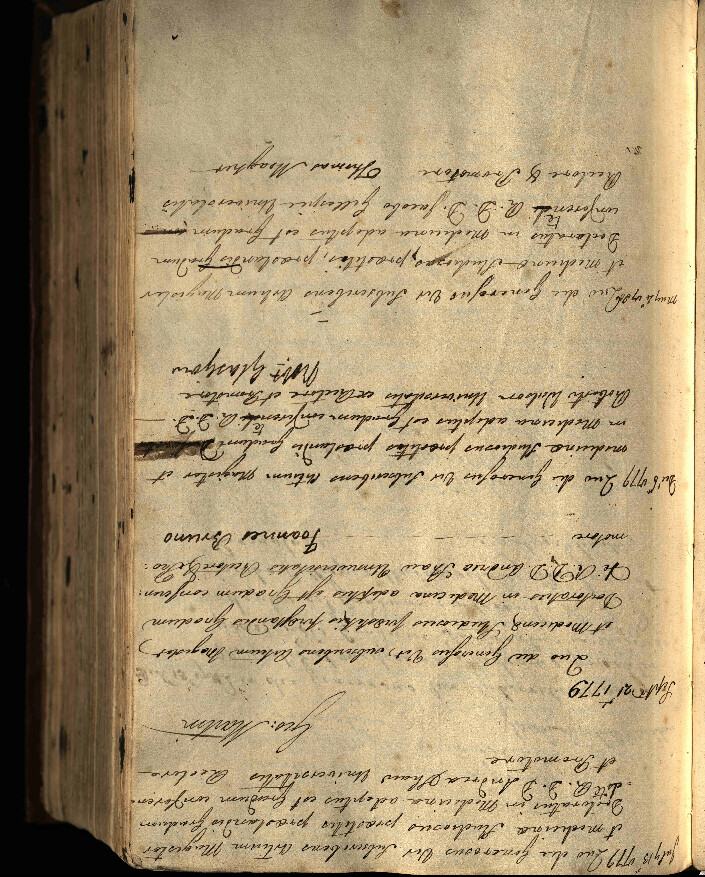 July 15 1779 Quo die Generosus Vir Subscribens Artium Magister
et medicinæ Studiosus præstitis præstandis Gradum
Doctoratus in Medicina adeptus est Gradum conferen:
:te R. D. D. Andrea Shaw Universitatis Rectore
et Promotore
Geo: Martin
Septr. 21st 1779
Quo die Generosus Vir, subscribens Artium Magister,
et Medicinæ Studiosus præstitis præstandis Gradum
Doctoratus in Medicina adeptus est Gradum conferen:
te R. D. D. Andrea Shaw Universitatis Rectore Pro:
motore Joannes Bruno
1779 Quo die Generosus Vir Subscribens Artium Magister et
medicinæ Studiosus præstitis præstandis gradum
in Medicina adeptus est gradum conferente R. D. D.
Roberto Watson Universitatis Rectore et Promotore
Robt. Glasgow
Quo die Generosus Vir Subscribens Artium Magister
et Medicinæ Studiosus, præstitis, præstandis gradum
Doctoratus in Medicina adeptus est Gradum
conferente R. D. D. Jacobo Gillespie Universitatis
Rectore & Promotore Thomas Meagher